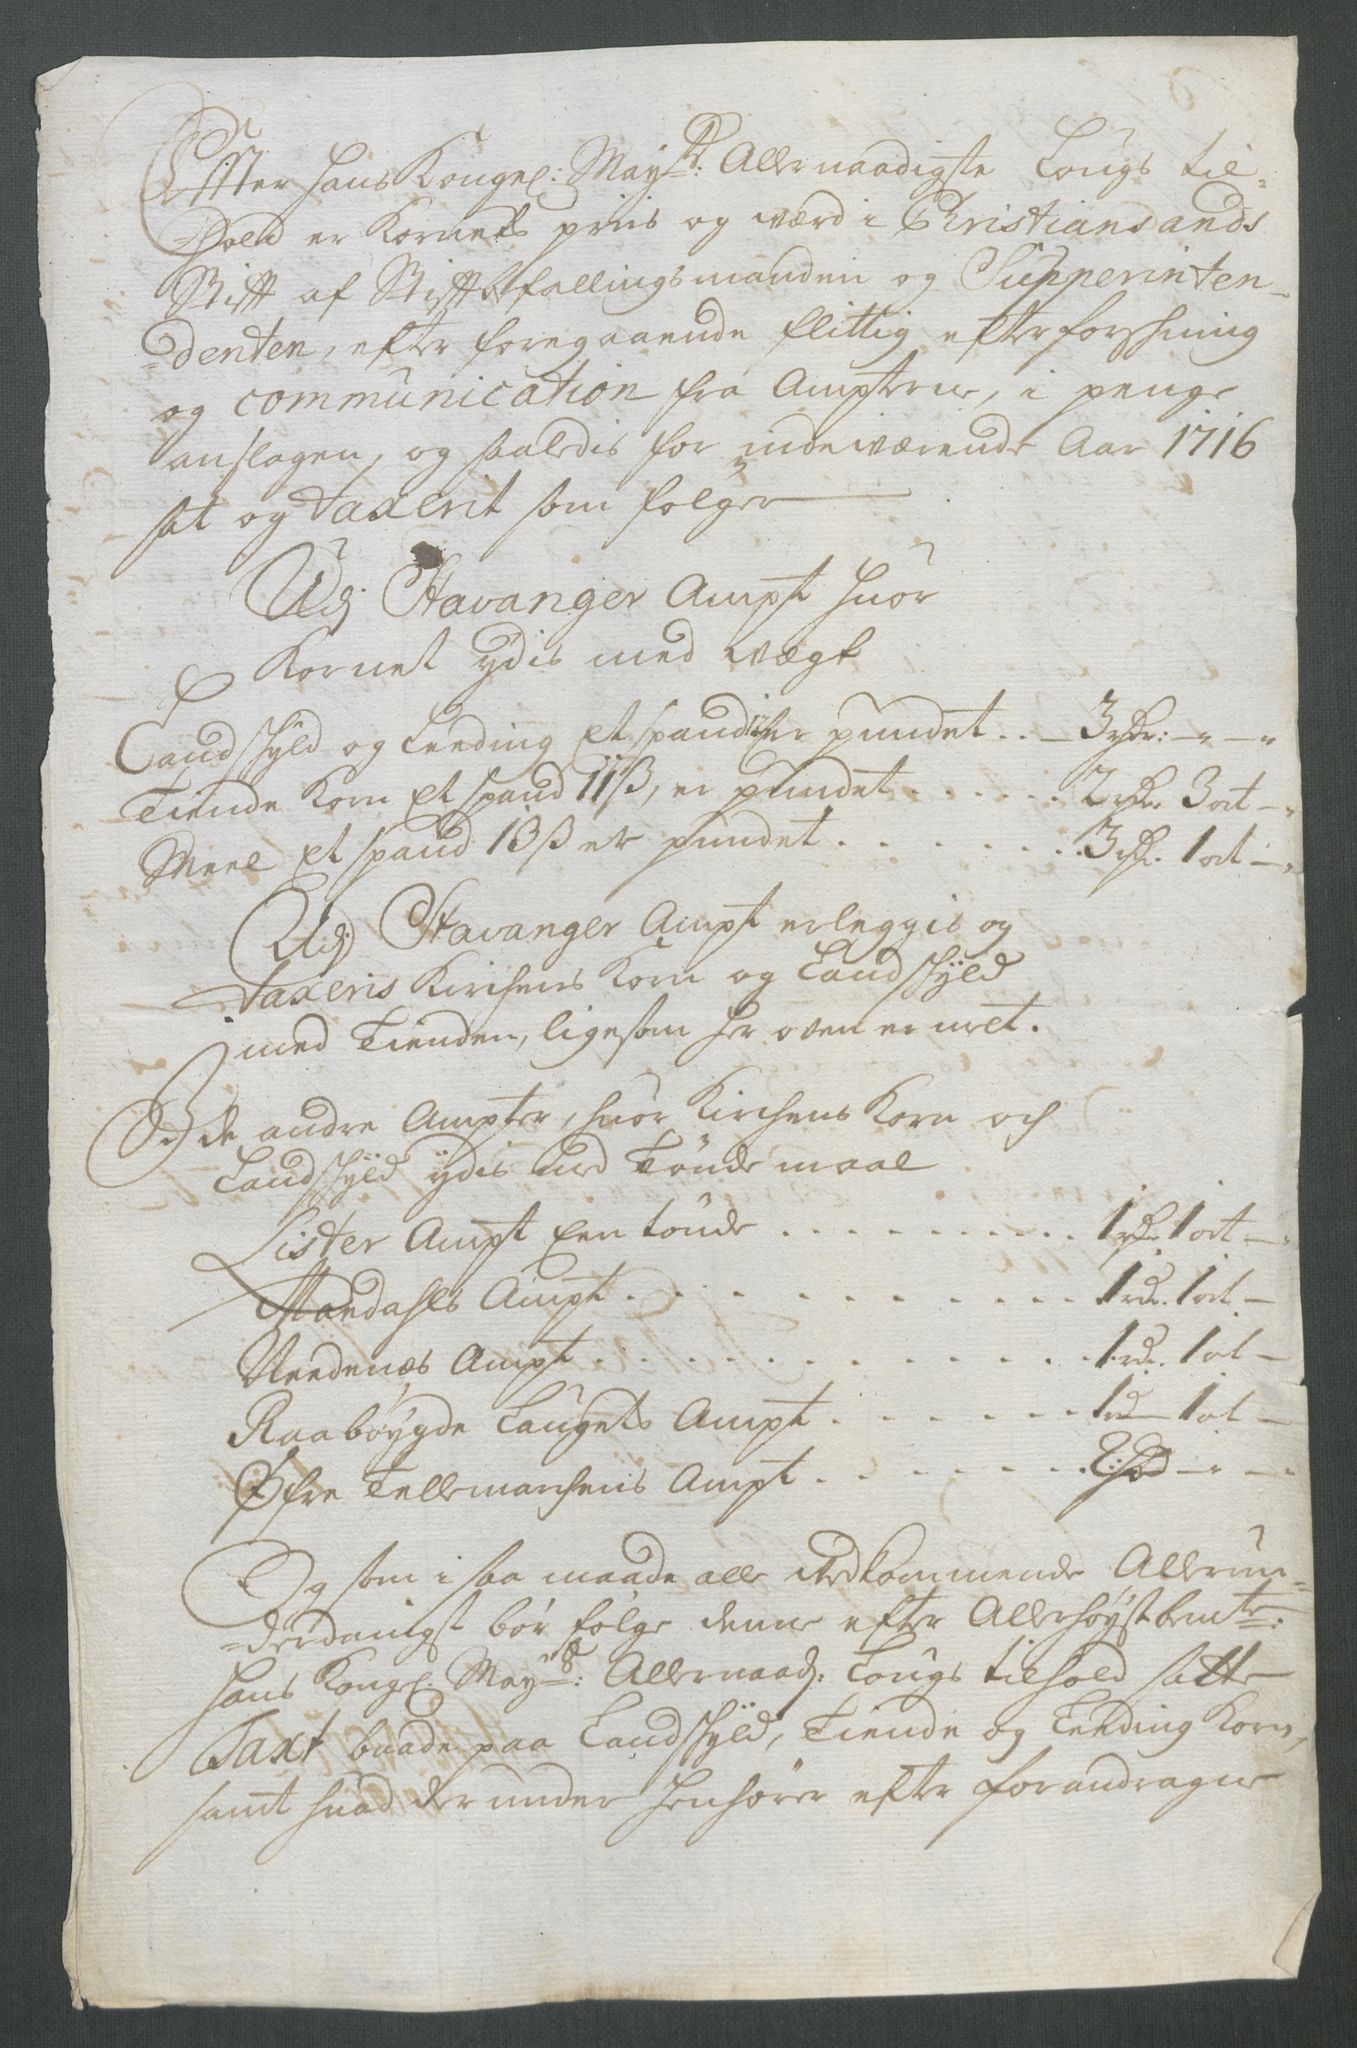 Effter Hans Kongel: May:ts: Allernaadigste Lougs til-
-hold er Kornets priis og værd i Christiansands
Stift af Stiftbefallingsmanden og Supperinten-
-denten, efter foregaaende flittig efterforskning
og communication fra Ampterne, i penge
anslagen, og saaledis for indeværende Aar 1716
sat og taxerit som følger
Udj Stavanger Ampt huor
Kornet ydis med vægt
Landskyld og Leeding et spand er pundet .. 3 rdr: - " - "
Tiende Korn et spand 11 ß, er pundet ...... 2 rdr. 3 ort - "
Meel et spand 13 ß er pundet ....... 3 rdr. 1 ort - "
Udj Stavanger Ampt erleggis og
taxeris Kirchens Korn og Landskyld
med Tienden, ligesom her oven er melt.
I de andre Ampter, huor Kirchens Korn och
Landskyld ydis med Tønde maal
Lister Ampt Een tønde .......... 1 rdr. 1 ort - "
Mandahls Ampt ............ 1 rd. 1 ort -
Needenæs Ampt ............ 1 rd. 1 ort -
Raabøygde Laugets Ampt ....... 1 rd - 1 ort -
Øfre Tellemarchens Ampt ........ 2 rd - " - "
Og som i saa maade alle vedkommende Allerun-
-derdanigst bør følge denne efter Allerhøystbemte:
Hans Kongl. May:ts: Allernaad: Lougs tilhold satte
Taxt baade paa Landskyld, Tiende og Leeding Korn,
samt huad der under henhører efter forandragne